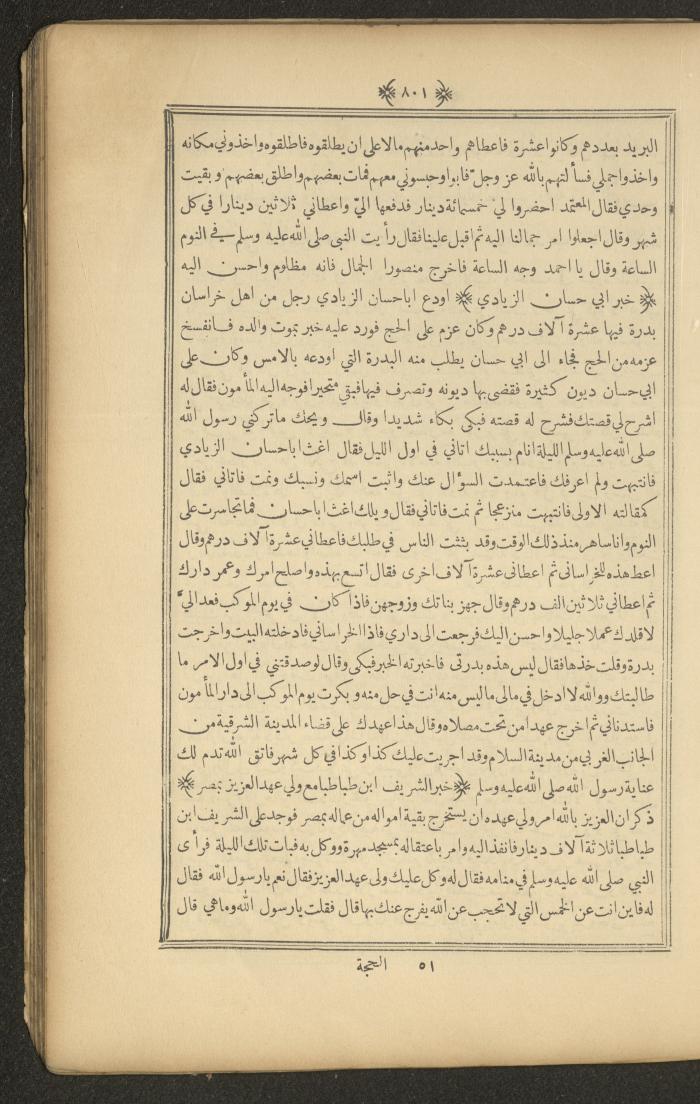 ﴿٨٠١﴾
البريد بعددهم وكانوا عشرة فاعطاهم واحد منهم مالا على ان يطلقوه فاطلقوه واخذوني مكانه
واخذوا جملي فسألتهم بالله عز وجل فابوا وحبسوني معهم فمات بعضهم واطلق بعضهم وبقيت
وحدي فقال المعتمد احضروا لي خمسمائة دينار فدفعها اليّ واعطاني ثلاثين دينارا في كل
شهر وقال اجعلوا امر جمالنا اليه ثم اقبل علينا فقال رأيت النبي صلى الله عليه وسلم في النوم
الساعة وقال يا احمد وجه الساعة فاخرج منصورا الجمال فانه مظلوم واحسن اليه
﴿ خبر ابي حسان الزيادي ﴾ اودع اباحسان الزيادي رجل من اهل خراسان
بدرة فيها عشرة آلاف درهم وكان عزم على الحج فورد عليه خبر بموت والده فانفسخ
عزمه من الحج فجاء الى ابي حسان يطلب منه البدرة التي اودعه بالامس وكان على
ابي حسان ديون كثيرة فقضى بها ديونه وتصرف فيها فبقي متحيرا فوجه اليه المأمون فقال له
اشرح لي قصتك فشرح له قصته فبكى بكاء شديدا وقال ويحك ماتركني رسول الله
صلى الله عليه وسلم الليلة انام بسببك اتاني في اول الليل فقال اغث اباحسان الزيادي
فانتبهت ولم اعرفك فاعتمدت السؤال عنك واثبت اسمك ونسبك ونمت فاتاني فقال
كمقالته الاولى فانتبهت منزعجا ثم نمت فاتاني فقال ويلك اغث اباحسان فما تجاسرت على
النوم واناساهر منذ ذلك الوقت وقد بثثت الناس في طلبك فاعطاني عشرة آلاف درهم وقال
اعط هذه للخراساني ثم اعطاني عشرة آلاف اخرى فقال اتسع بهذه واصلح امرك وعمر دارك
ثم اعطاني ثلاثين الف درهم وقال جهز بناتك وزوجهن فاذا كان في يوم الموكب فعد اليّ
لاقلدك عملا جليلا واحسن اليك فرجعت الى داري فاذا الخراساني فادخلته البيت واخرجت
بدرة وقلت خذها فقال ليس هذه بدرتي فاخبرته الخبر فبكى وقال لو صدقتني في اول الامر ما
طالبتك ووالله لا ادخل في مالى ماليس منه انت في حل منه وبكرت يوم الموكب الى دار المأمون
فاستدناني ثم اخرج عهدا من تحت مصلاه وقال هذا عهدك على قضاء المدينة الشرقية من
الجانب الغربي من مدينة السلام وقد اجريت عليك كذا وكذا في كل شهر فاتق الله تدم لك
عناية رسول الله صلى الله عليه وسلم ﴿ خبر الشريف ابن طباطبا مع ولي عهد العزيز بمصر ﴾
ذكر ان العزيز بالله امر ولي عهده ان يستخرج بقية امواله من عماله بمصر فوجد على الشريف ابن
طباطبا ثلاثة آلاف دينار فانفذ اليه وامر باعتقاله بمسجد مهرة ووكل به فبات تلك الليلة فرأى
النبي صلى الله عليه وسلم في منامه فقال له وكل عليك ولى عهد العزيز فقال نعم يا رسول الله فقال
له فاين انت عن الخمس التي لا تحجب عن الله يفرج عنك بها قال فقلت يارسول الله وماهي قال
٥١ الحجة